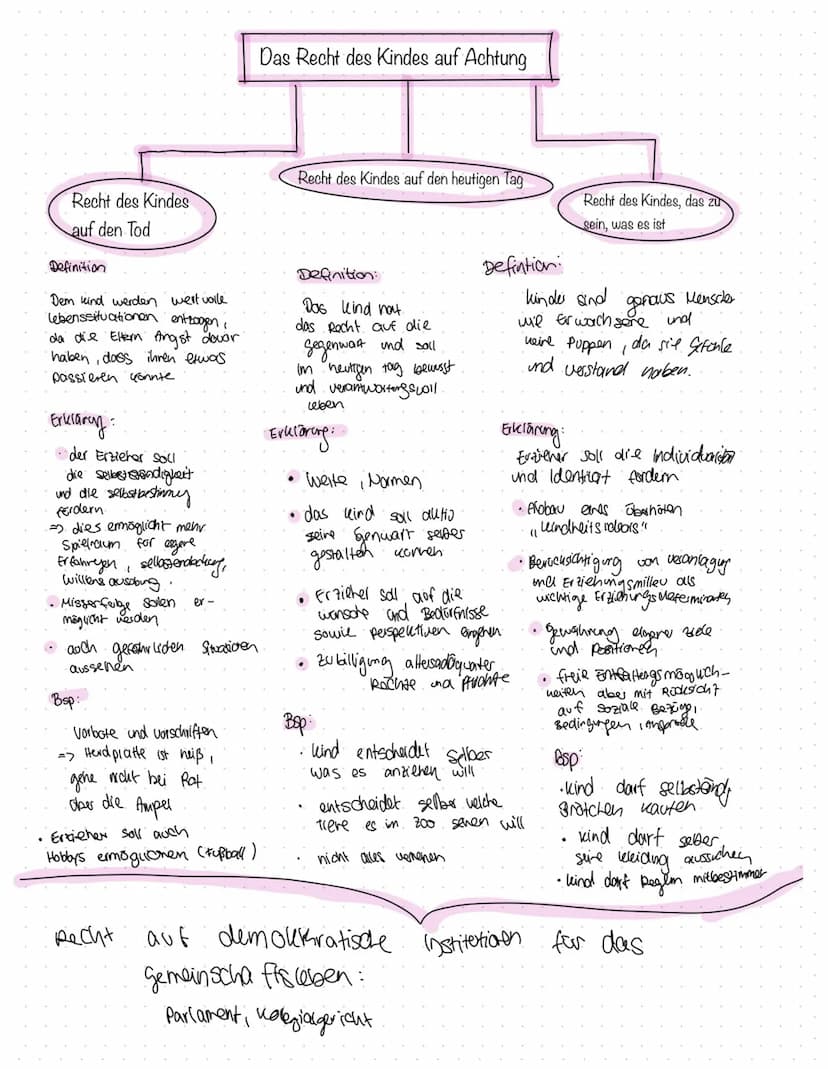 Das Recht des Kindes auf Achtung
Recht des Kindes
auf den Tod
Definition
Dem kind werden wertvolle
lebenssituationen entzogen,
da die Eltern Angst davor
haben, dass ihnen etwas
passieren könnte
Erklärung:
• der Erzieher soll
die selbstständigkeit
und die selbstbestimmung
fördern
=> dies ermöglicht mehr
Spielraum für eigene
Erfahrungen, selbstentdeckung,
willensausübung.
• Misserfolge sollen er-
möglicht werden
• auch gefährlichen Situationen
aussehen
Bsp:
Verbote und vorschriften
=> Herdplatte ist heiß,
gehe nicht bei Rot
über die Ampel
• Erzieher soll auch
Hobbys ermöglichen (Fußball)
Recht des Kindes auf den heutigen Tag
Definition:
Das kind hat
das Recht auf die
gegenwart und soll
im heutigen Tag bewusst
und verantwortungsvoll
leben
Erklärung:
• Werte, Normen
• das kind soll aktiv
seine Genwart selber
gestalten können
• Erzieher soll auf die
wünsche und Bedürfnisse
sowie perspektiven eingehen
• Zubilligung altersadäquater
Rechte und Pflichte
Bsp:
• kind entscheidet selber
was es anziehen will
• entscheidet selber welche
Tiere es in zoo sehen will
• nicht alles
Recht des Kindes, das zu
sein, was es ist
Defintion:
kinder sind genaus Menschen
wie Erwachsene und
keine Puppen, da sie Gefühle
und verstand haben.
Erklärung:
Erzieher soll die Individualität
und Identität fördern
• Abbau eines überhöhten
"
• Berücksichtigung von veranlagung
und Erziehungsmilieu als
wichtige Erziehungsdeterminanten
• Gewährung eigener ziele
und Positionen
• freie Entfaltungsmöglich-
keiten aber mit Rücksicht
auf soziale Bezüge,
Bedingungen,
Bsp:
• kind darf selbständig
Brötchen kaufen
• kind darf selber
seine kleidung aussuchen
• kind darf Regeln mitbestimmen
Recht auf demokratische institutionen für das
Gemeinschaftsleben:
Parlament, kollegialgericht